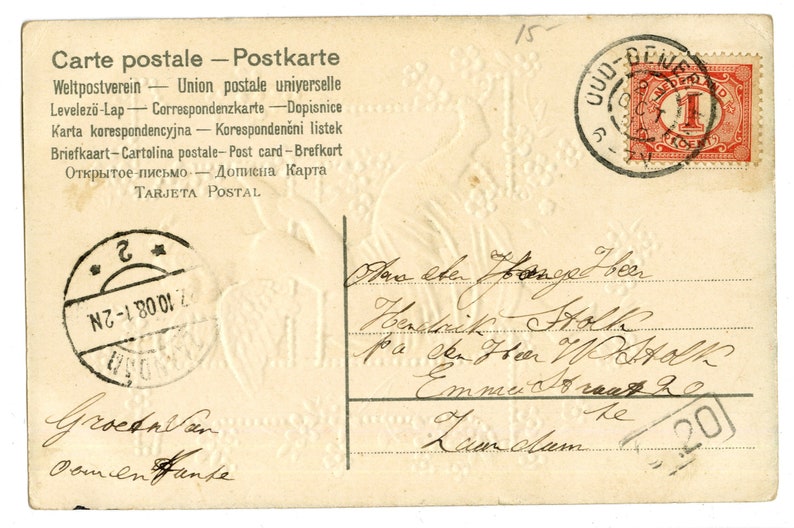 15-
Carte postale — Postkarte
Weltpostverein — Union postale universelle
Levelező-Lap — Correspondenzkarte — Dopisnice
Karta korespondencyjna — Korespondenční listek
Briefkaart — Cartolina postale — Post card — Brefkort
Открытое-письмо — Дописна Карта
Tarjeta Postal
NEDERLAND
1
CENT
OCT
2
7.10.08.1-2N
ZAANDAM
Aan den Jonge Heer
Hendrik Stolk
p/a den Heer W Stolk
Emma Straat 20
te
Zaandam
20
Groeten van
oom en Tante